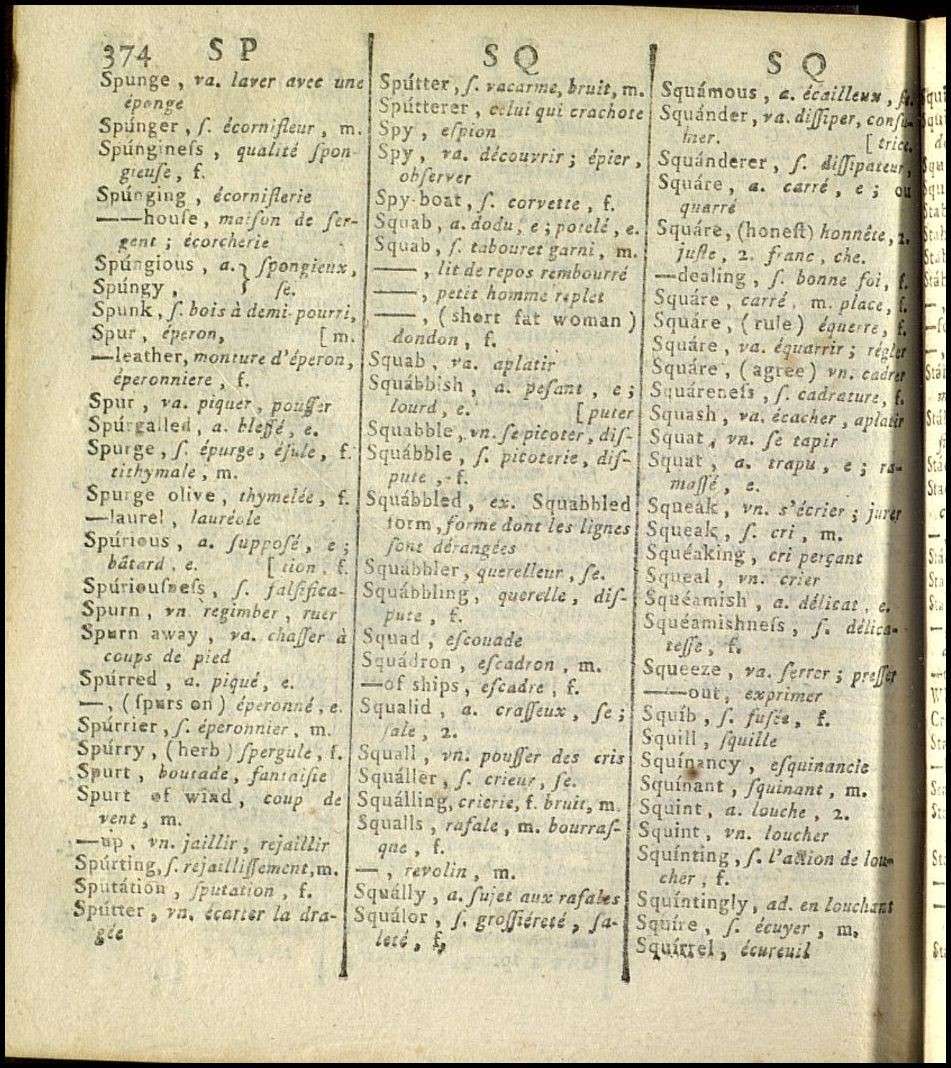 374 S P
Spunge, va. laver avec une
éponge
Spúnger, ſ. écornifleur, m.
Spúngineſs, qualité ſpon-
gieuſe, f.
Spúnging, écorniflerie
——houſe, maiſon de ſer-
gent; écorcherie
Spúngious, a. } ſpongieux,
Spúngy, } ſe.
Spunk, ſ. bois à demi-pourri,
Spur, éperon, [m.
—leather, monture d'éperon,
éperonniere, f.
Spur, va. piquer, pouſſer
Spúrgalled, a. bleſſé, e.
Spurge, ſ. épurge, éſule, f.
tithymale, m.
Spurge olive, thymelée, f.
—laurel, lauréole
Spúrious, a. ſuppoſé, e;
bâtard, e. [tion, f.
Spúriouſneſs, ſ. falſifica-
Spurn, vn. regimber, ruer
Spurn away, va. chaſſer à
coups de pied
Spúrred, a. piqué, e.
—, (ſpurs on) éperonné, e.
Spúrrier, ſ. éperonnier, m.
Spúrry, (herb) ſpergule, f.
Spurt, boutade, fantaiſie
Spurt of wind, coup de
vent, m.
—up, vn. jaillir, rejaillir
Spúrting, ſ. rejailliſſement, m.
Sputátion, ſputation, f.
Spútter, va. écarter la dra-
gée
S Q
Spútter, ſ. vacarme, bruit, m.
Spútterer, celui qui crachote
Spy, eſpion
Spy, va. découvrir; épier,
obſerver
Spy-boat, ſ. corvette, f.
Squab, a. dodu, e; potelé, e.
Squab, ſ. tabouret garni, m.
——, lit de repos rembourré
——, petit homme replet
——, (short fat woman)
dondon, f.
Squab, va. aplatir
Squábbish, a. peſant, e;
lourd, e. [puter
Squabble, vn. ſe picoter, diſ-
Squábble, ſ. picoterie, diſ-
pute, f.
Squábbled, ex. Squabbled
form, forme dont les lignes
ſont dérangées
Squábbler, querelleur, ſe.
Squábbling, querelle, diſ-
pute, f.
Squad, eſcouade
Squádron, eſcadron, m.
—of ships, eſcadre, f.
Squalid, a. craſſeux, ſe;
ſale, 2.
Squall, vn. pouſſer des cris
Squáller, ſ. crieur, ſe.
Squálling, crierie, f. bruit, m.
Squalls, rafale, m. bourraſ-
que, f.
—, revolin, m.
Squálly, a. ſujet aux rafales
Squálor, ſ. groſſiéreté, ſa-
leté, f.
S Q
Squámous, a. écailleux, ſe.
Squánder, va. diſſiper, conſu-
mer. [trice.
Squánderer, ſ. diſſipateur,
Squáre, a. carré, e; ou
quarré
Squáre, (honeſt) honnête, 2.
juſte, 2. franc, che.
—dealing, ſ. bonne foi, f.
Squáre, carré, m. place, f.
Squáre, (rule) équerre, f.
Squáre, va. équarrir; régler
Squáre, (agree) vn. cadrer
Squáreneſs, ſ. cadrature, f.
Squash, va. écacher, aplatir
Squat, vn. ſe tapir
Squat, a. trapu, e; ra-
maſſé, e.
Squeak, vn. s'écrier; jurer
Squeak, ſ. cri, m.
Squéaking, cri perçant
Squeal, vn. crier
Squéamish, a. délicat, e.
Squéamishneſs, ſ. délica-
teſſe, f.
Squeeze, va. ſerrer; preſſer
——out, exprimer
Squib, ſ. fuſée, f.
Squill, ſquille
Squínancy, eſquinancie
Squínant, ſquinant, m.
Squint, a. louche, 2.
Squint, vn. loucher
Squínting, ſ. l'action de lou-
cher, f.
Squíntingly, ad. en louchant
Squíre, ſ. écuyer, m.
Squírrel, écureuil